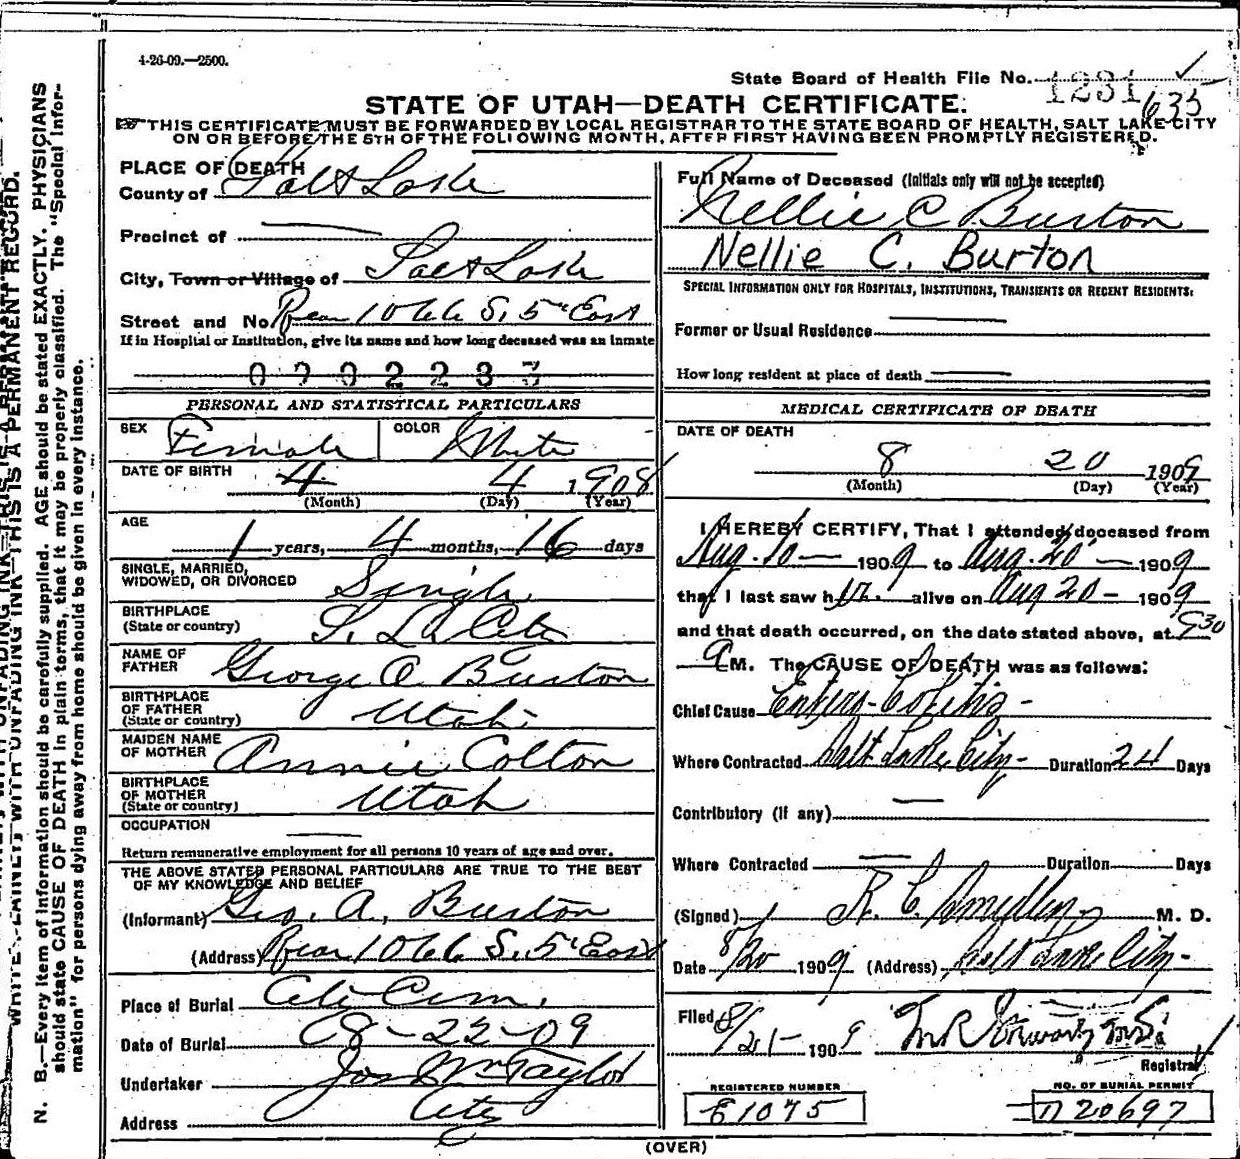 4-26-09.—2500.
State Board of Health File No. 1231
635
STATE OF UTAH—DEATH CERTIFICATE.
THIS CERTIFICATE MUST BE FORWARDED BY LOCAL REGISTRAR TO THE STATE BOARD OF HEALTH, SALT LAKE CITY
ON OR BEFORE THE 5TH OF THE FOLLOWING MONTH, AFTER FIRST HAVING BEEN PROMPTLY REGISTERED.
PLACE OF DEATH
County of Salt Lake
Precinct of
City, Town or Village of Salt Lake
Street and No. Rear 1066 S. 5" East
If in Hospital or Institution, give its name and how long deceased was an inmate
0702237
PERSONAL AND STATISTICAL PARTICULARS
SEX Female COLOR White
DATE OF BIRTH 4 4 1908
(Month) (Day) (Year)
AGE
1 years, 4 months, 16 days
SINGLE, MARRIED,
WIDOWED, OR DIVORCED Single
BIRTHPLACE
(State or country) S. L. City
NAME OF
FATHER George A Burton
BIRTHPLACE
OF FATHER
(State or country) Utah
MAIDEN NAME
OF MOTHER Annie Colton
BIRTHPLACE
OF MOTHER
(State or country) Utah
OCCUPATION
Return remunerative employment for all persons 10 years of age and over.
THE ABOVE STATED PERSONAL PARTICULARS ARE TRUE TO THE BEST
OF MY KNOWLEDGE AND BELIEF
(Informant) Geo. A. Burton
(Address) Rear 1066 S. 5" East
Place of Burial City Cem.
Date of Burial 08-22-09
Undertaker Jos Wm Taylor
Address City
Full Name of Deceased (Initials only will not be accepted)
Nellie C Burton
Nellie C. Burton
SPECIAL INFORMATION ONLY FOR HOSPITALS, INSTITUTIONS, TRANSIENTS OR RECENT RESIDENTS:
Former or Usual Residence
How long resident at place of death
MEDICAL CERTIFICATE OF DEATH
DATE OF DEATH
8 20 1909
(Month) (Day) (Year)
I HEREBY CERTIFY, That I attended deceased from
Aug. 10 — 1909 to Aug. 20 — 1909
that I last saw h alive on Aug 20 — 1909
and that death occurred, on the date stated above, at 930
A M. The CAUSE OF DEATH was as follows:
Chief Cause Entero-Colitis -
Where Contracted Salt Lake City - Duration 24 Days
Contributory (if any)
Where Contracted Duration Days
(Signed) M. D.
Date 8/20 1909 (Address) Salt Lake City -
Filed 8/21- 1909
Registrar
REGISTERED NUMBER
E1075
NO. OF BURIAL PERMIT
D20697
(OVER)
WRITE PLAINLY WITH UNFADING INK—THIS IS A PERMANENT RECORD.
N. B.—Every item of information should be carefully supplied. AGE should be stated EXACTLY. PHYSICIANS
should state CAUSE OF DEATH in plain terms, that it may be properly classified. The "Special Infor-
mation" for persons dying away from home should be given in every instance.